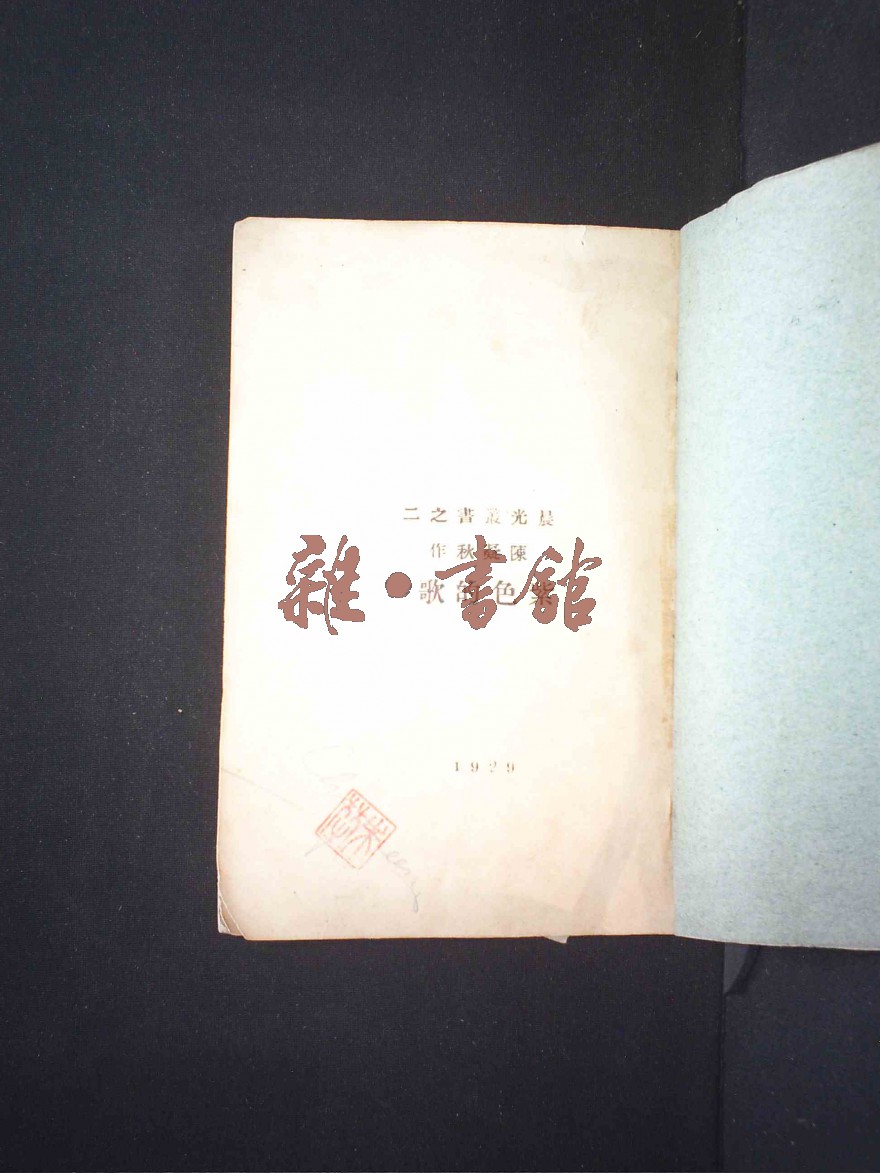 晨光叢書之二
陳凝秋作
紫色的歌
雜·書館
1929